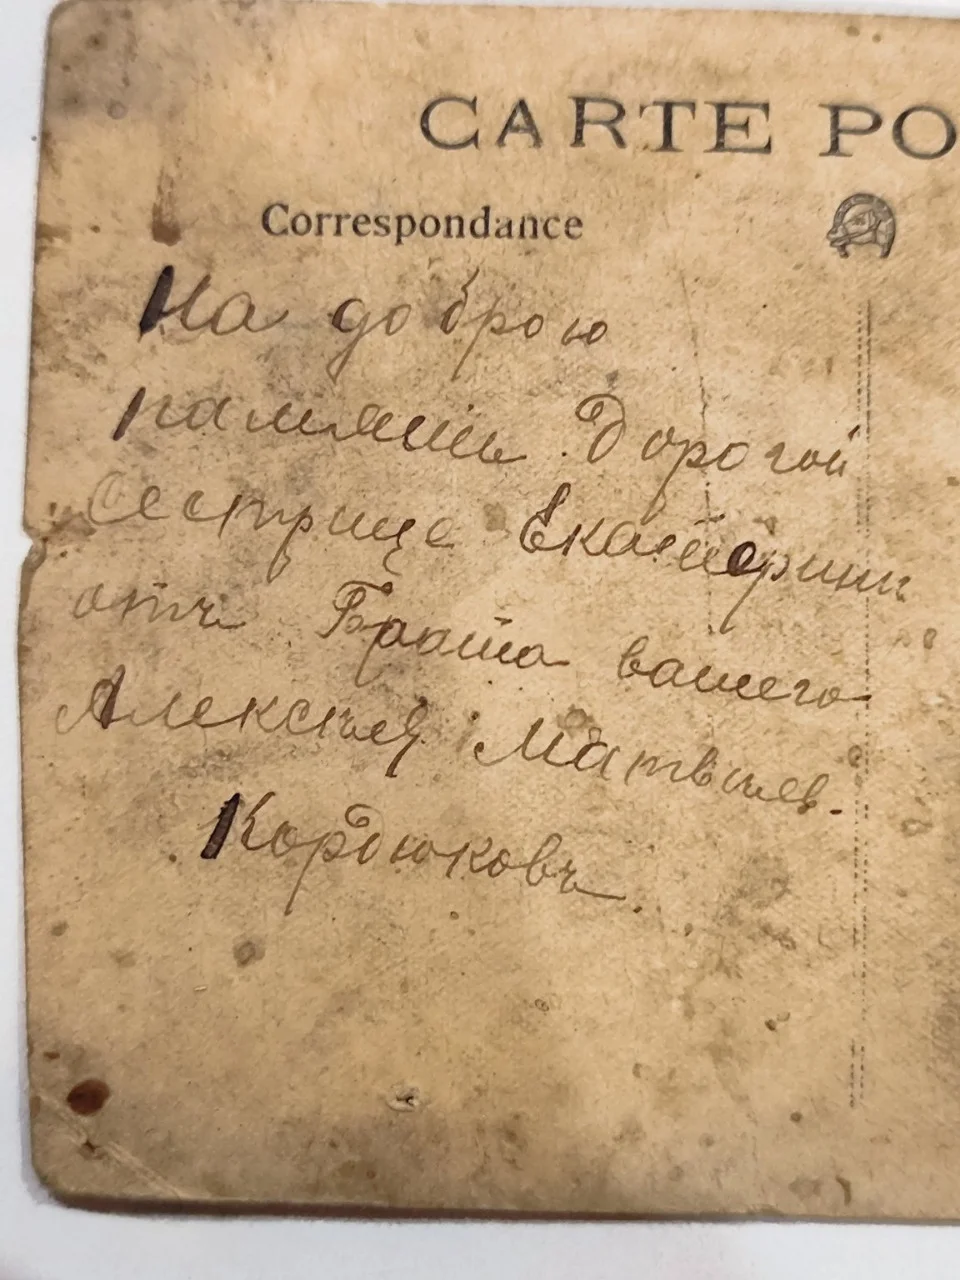 CARTE PO
Correspondance
На доброю
память Дорогой
Сестрице Екатерини
отъ Брата вашего
Алексѣя Матвѣев.
Кордюковъ.